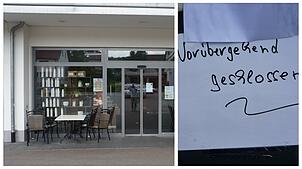 Vorübergehend
geschlossen